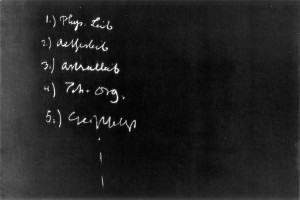 1.) Phys. Leib
2.) Aetherleib
3.) Astralleib
4.) Ich-Org.
5.)